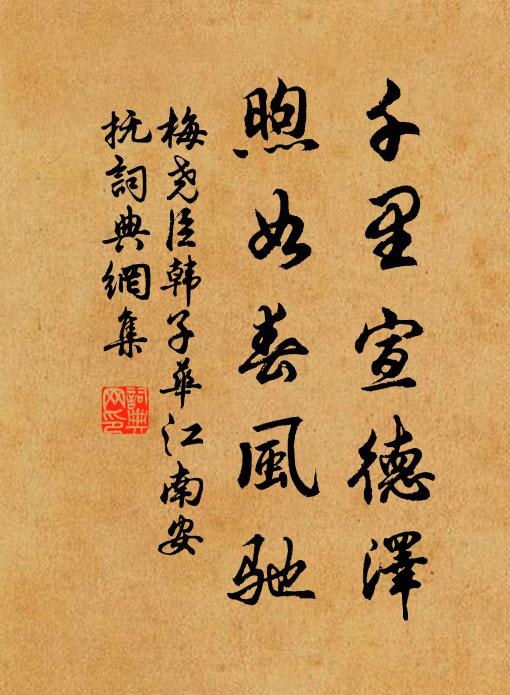 千里宣德澤
煦如春風馳
梅尧臣韩子華江南安
抚詞典網集
詞典
网印